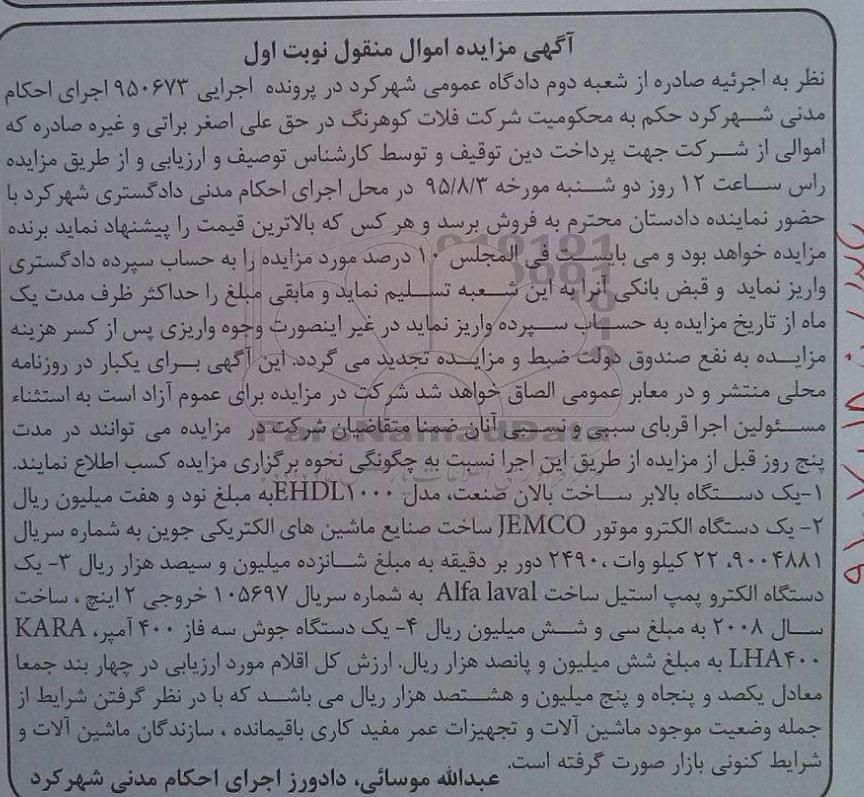 آگهی مزایده اموال منقول نوبت اول
نظر به اجرئیه صادره از شعبه دوم دادگاه عمومی شهرکرد در پرونده اجرایی ۹۵۰۶۷۳ اجرای احکام
مدنی شهرکرد حکم به محکومیت شرکت فلات کوهرنگ در حق علی اصغر براتی و غیره صادره که
اموالی از شرکت جهت پرداخت دین توقیف و توسط کارشناس توصیف و ارزیابی و از طریق مزایده
راس ساعت ۱۲ روز دو شنبه مورخه ۹۵/۸/۳ در محل اجرای احکام مدنی دادگستری شهرکرد با
حضور نماینده دادستان محترم به فروش برسد و هر کس که بالاترین قیمت را پیشنهاد نماید برنده
مزایده خواهد بود و می بایست فی المجلس ۱۰ درصد مورد مزایده را به حساب سپرده دادگستری
واریز نماید و قبض بانکی آنرا به این شعبه تسلیم نماید و مابقی مبلغ را حداکثر ظرف مدت یک
ماه از تاریخ مزایده به حساب سپرده واریز نماید در غیر اینصورت وجوه واریزی پس از کسر هزینه
مزایده به نفع صندوق دولت ضبط و مزایده تجدید می گردد. این آگهی برای یکبار در روزنامه
محلی منتشر و در معابر عمومی الصاق خواهد شد شرکت در مزایده برای عموم آزاد است به استثناء
مسئولین اجرا قربای سببی و نسبی آنان ضمنا متقاضیان شرکت در مزایده می توانند در مدت
پنج روز قبل از مزایده از طریق این اجرا نسبت به چگونگی نحوه برگزاری مزایده کسب اطلاع نمایند.
۱-یک دستگاه بالابر ساخت بالان صنعت، مدل EHDL۱۰۰۰به مبلغ نود و هفت میلیون ریال
۲- یک دستگاه الکترو موتور JEMCO ساخت صنایع ماشین های الکتریکی جوین به شماره سریال
۹۰۰۴۸۸۱، ۲۲ کیلو وات ،۲۴۹۰ دور بر دقیقه به مبلغ شانزده میلیون و سیصد هزار ریال ۳- یک
دستگاه الکترو پمپ استیل ساخت Alfa laval به شماره سریال ۱۰۵۶۹۷ خروجی ۲ اینچ ، ساخت
سال ۲۰۰۸ به مبلغ سی و شش میلیون ریال ۴- یک دستگاه جوش سه فاز ۴۰۰ آمپر، KARA
LHA۴۰۰ به مبلغ شش میلیون و پانصد هزار ریال. ارزش کل اقلام مورد ارزیابی در چهار بند جمعا
معادل یکصد و پنجاه و پنج میلیون و هشتصد هزار ریال می باشد که با در نظر گرفتن شرایط از
جمله وضعیت موجود ماشین آلات و تجهیزات عمر مفید کاری باقیمانده ، سازندگان ماشین آلات و
شرایط کنونی بازار صورت گرفته است.
عبدالله موسائی، دادورز اجرای احکام مدنی شهرکرد
ParsNamadData